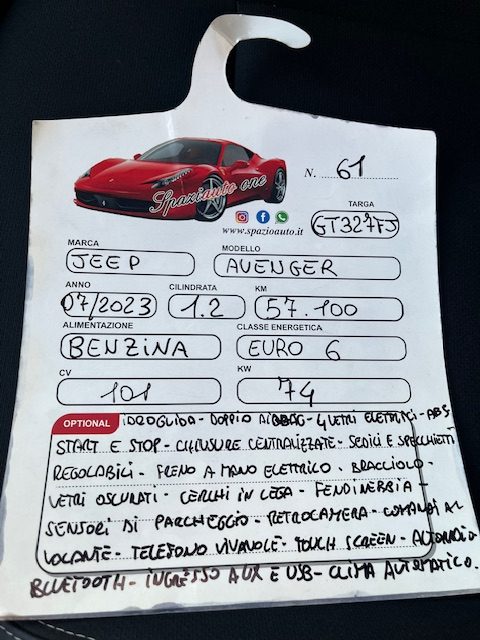 N. 61
Spaziauto one
TARGA
www.spazioauto.it
GT327FJ
MARCA
MODELLO
JEEP
AVENGER
ANNO
CILINDRATA
KM
07/2023
1.2
57.100
ALIMENTAZIONE
CLASSE ENERGETICA
BENZINA
EURO 6
CV
KW
101
74
OPTIONAL IDROGUIDA - DOPPIO AIRBAG - 4 VETRI ELETTRICI - ABS
START E STOP - CHIUSURE CENTRALIZZATE - SEDILI E SPECCHIETTI
REGOLABILI - FRENO A MANO ELETTRICO - BRACCIOLO -
VETRI OSCURATI - CERCHI IN LEGA - FENDINEBBIA -
SENSORI DI PARCHEGGIO - RETROCAMERA - COMANDI AL
VOLANTE - TELEFONO VIVAVOCE - TOUCH SCREEN - AUTORADIO
BLUETOOTH - INGRESSO AUX E USB - CLIMA AUTOMATICO.